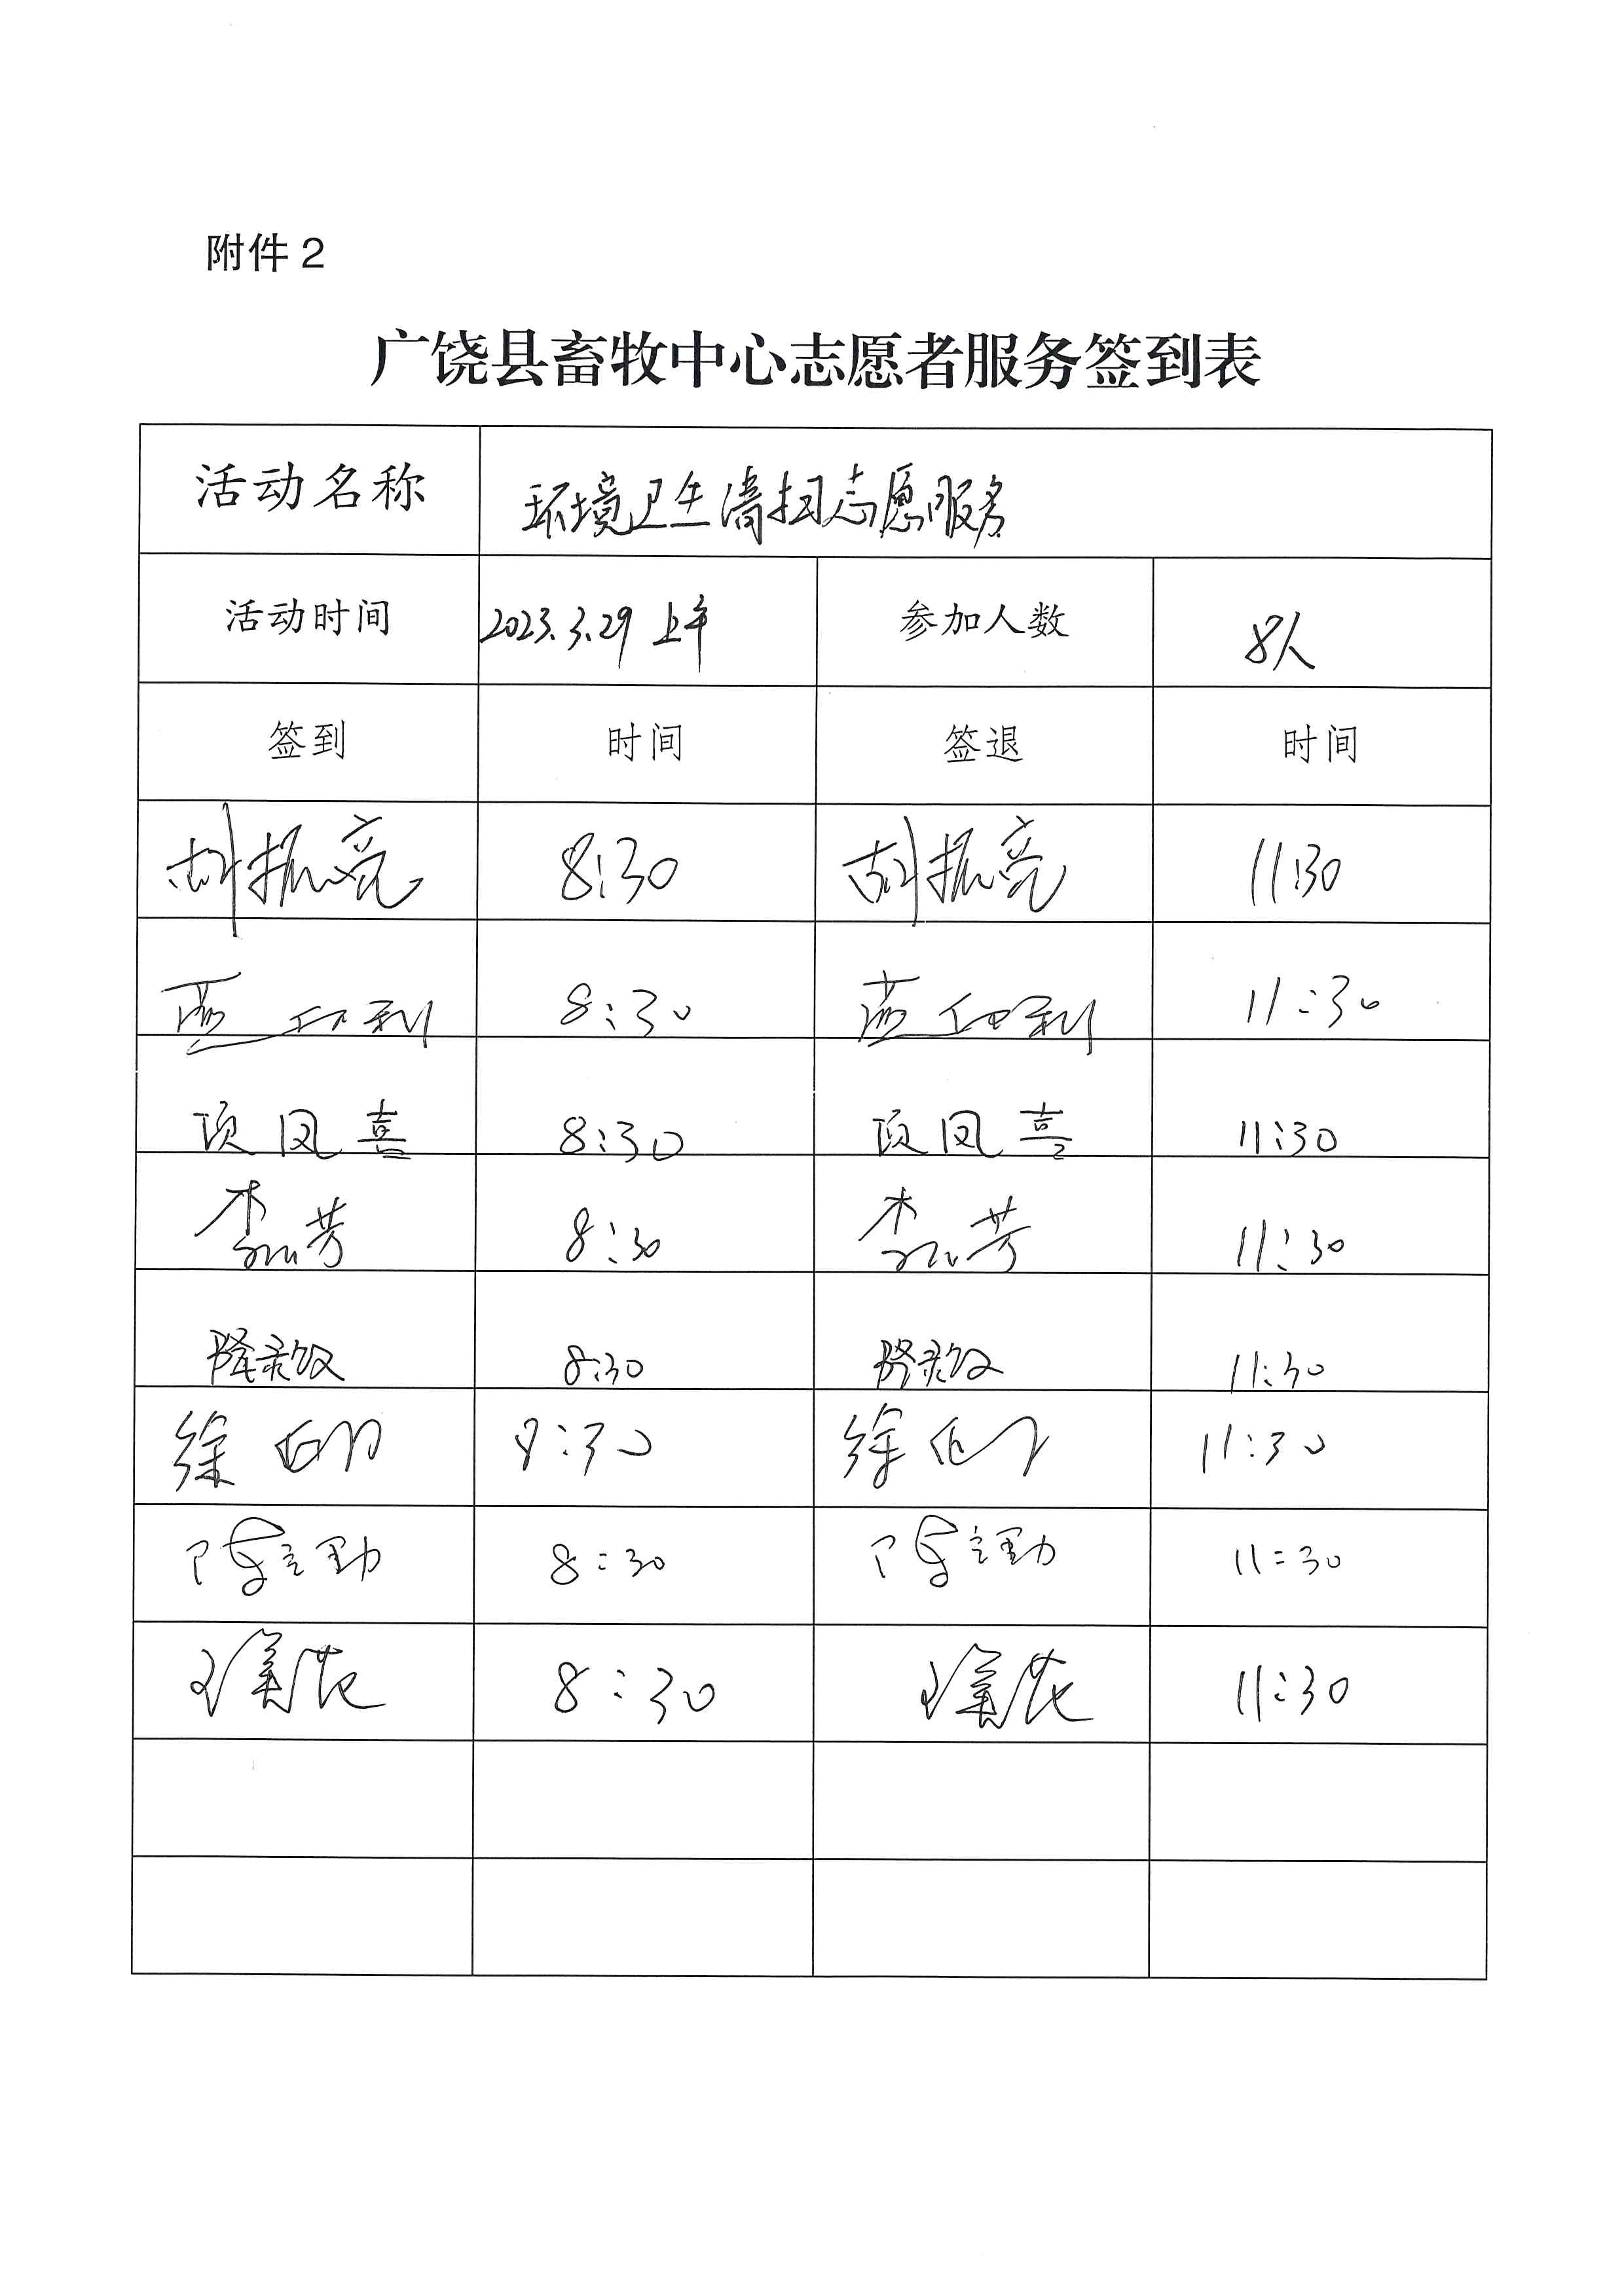 附件2
广饶县畜牧中心志愿者服务签到表
活动名称 环境卫生清扫志愿服务
活动时间 2023.3.29 上午 参加人数 8人
签到 时间 签退 时间
胡振亮 8:30 胡振亮 11:30
8:30 11:30
项凤喜 8:30 项凤喜 11:30
李 芳 8:30 李 芳 11:30
8:30 11:30
徐 8:30 徐 11:30
陈 勤 8:30 陈 勤 11:30
8:30 11:30